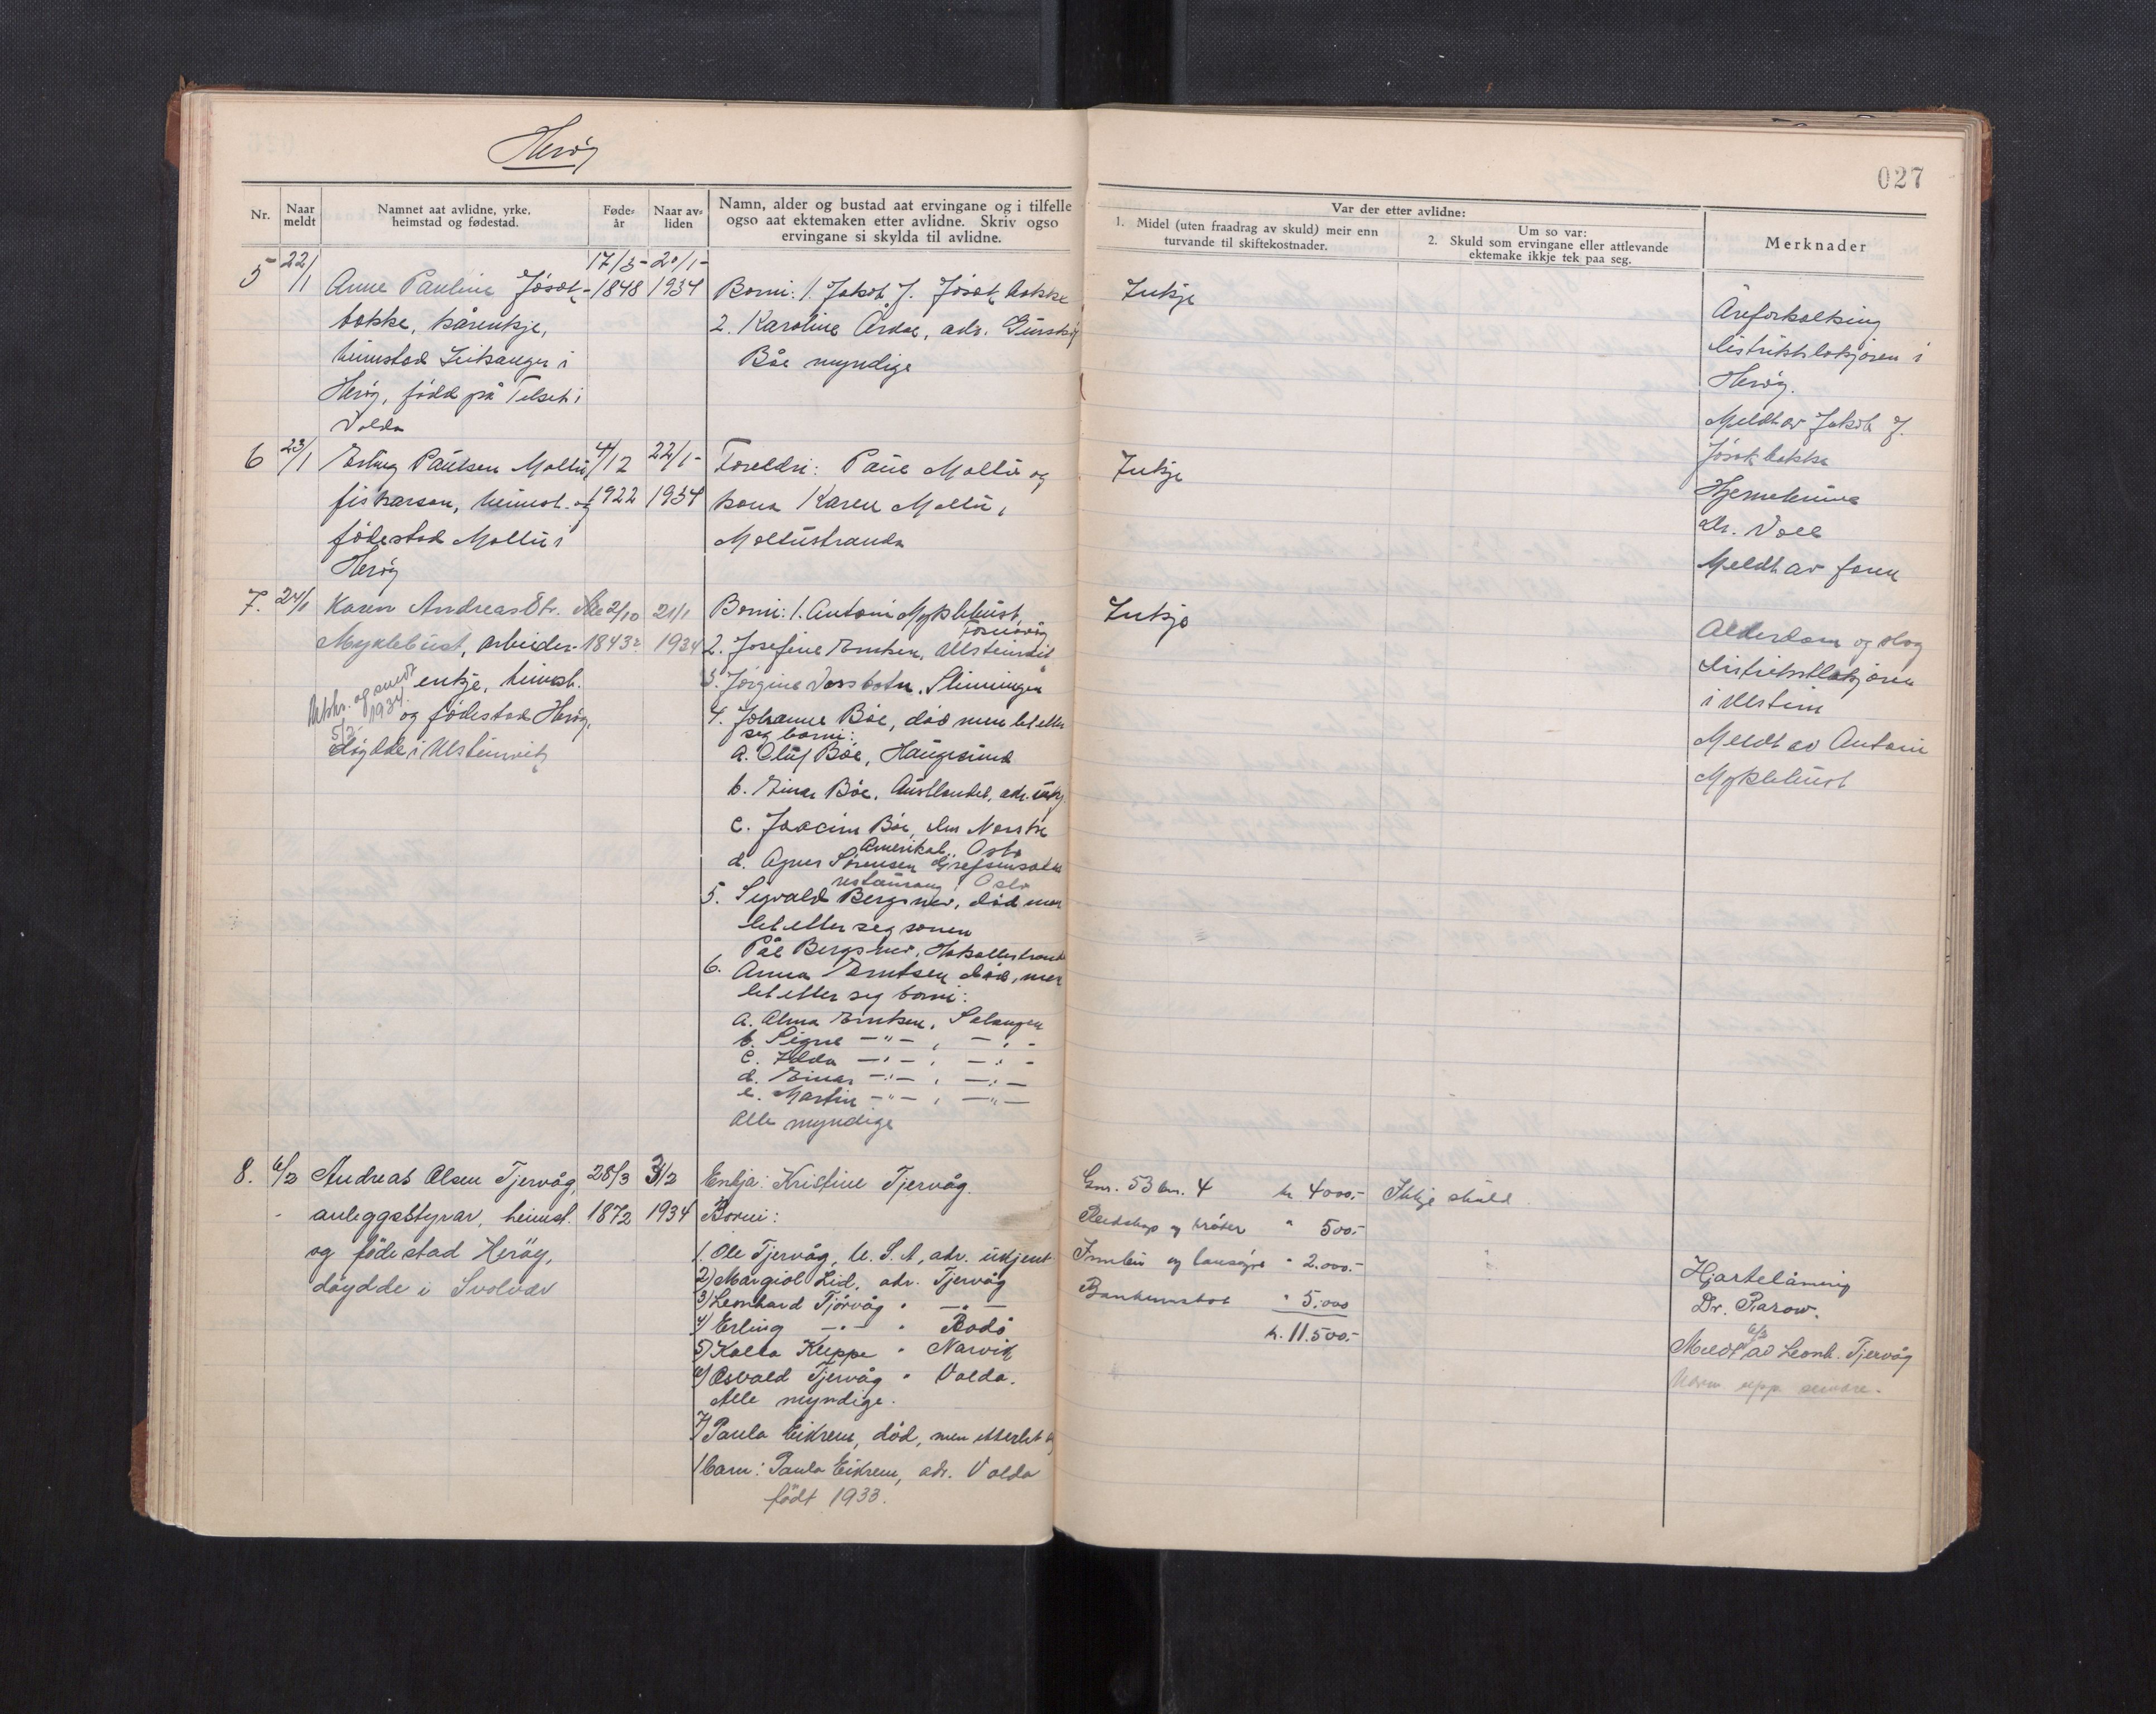 Herøy
027
Nr.
Naar meldt
Namnet aat avlidne, yrke, heimstad og fødestad.
Føde-år
Naar av-liden
Namn, alder og bustad aat ervingane og i tilfelle
ogso aat ektemaken etter avlidne. Skriv ogso
ervingane si skylda til avlidne.
Var der etter avlidne:
1. Midel (uten fraadrag av skuld) meir enn
turvande til skiftekostnader.
Um so var:
2. Skuld som ervingane eller attlevande
ektemake ikkje tek paa seg.
Merknader
5 22/1
Anne Pauline Jøsok-
bakke, kårenkje,
heimstad Leikanger i
Herøy, født på Telset i
Volda
17/5- 1848
20/1- 1934
Borni: 1. Jakob J. Jøsokbakke
2. Karoline Årdal, adr. Gurskøy
Båe myndige
Inkje
Åreforkalking
distriktslækjaren i
Herøy.
Meldt av Jakob J.
Jøsokbakke
6 23/1
Erling Paulsen Moltu,
fiskarson, heimst. og
fødestad Moltu i
Herøy
4/12 1922
22/1- 1934
Foreldri: Paul Moltu og
kona Karen Moltu,
Moltustranda
Inkje
Dr. Voll
Meldt av faren
7. 24/1
Karen Andreasdtr.
Myklebust, arbeider-
enkje, heimst.
og fødestad Herøy,
døydde i Ulsteinvik
Utskr. og sendt
5/2- 1934.
2/10 1843
21/1 1934
Borni: 1. Antoni Myklebust,
Fosnavåg
2. Josefine Erntsen, Ulsteinvik
3. Jørgine Vassbotn, Flimmingen
4. Johanne Bøe, død men let etter
seg borni:
a. Oluf Bøe, Haugesund
b. Einar Bøe, Austlandet, adr. ukj.
c. Joacim Bøe, den Norske
Amerikal., Oslo
d. Agnes Sørensen Grefsensaten
restaurang, Oslo
5. Sigvald Bergsnev, død men
let etter seg sonen
Pål Bergsnev, Hakallestrand
6. Anna Erntsen død, men
let etter seg borni:
a. Alma Erntsen, Salangen
b. Signe —"— , —"—
c. Hilda —"— , —"—
d. Einar —"— , —"—
e. Martin —"— , —"—
Alle myndige
Inkje
Alderdom og slag
distriktslækjaren
i Ulstein
Meldt av Antoni
Myklebust
8. 6/2
Andreas Olsen Tjervåg,
anleggsstyrar, heimst.
og fødestad Herøy,
døydde i Svolvær
28/3 1872
3/2 1934
Enkja: Kristine Tjervåg.
Borni:
1. Ole Tjervåg, U.S.A, adr. ukjent
2) Margiol Lid, adr. Tjervåg
3) Leonhard Tjørvåg " —"—
4) Erling —"— " Bodø
5) Kalla Kleppe " Narvik
6) Osvald Tjervåg " Volda.
Alle myndige.
7) Paula Eikrem, død, men etterlet seg
1 barn: Paula Eikrem, adr. Volda
født 1933.
Gnr. 53 bn. 4 kr. 4000.-
Reidskap og krøter " 500.-
Innbu og lausøyre " 2.000.-
Bankinnskot " 5.000
kr. 11.500.-
Ikkje skuld.
Hjartelåming
Dr. Rarow.
Meldt 6/2 av Leonh. Tjervåg